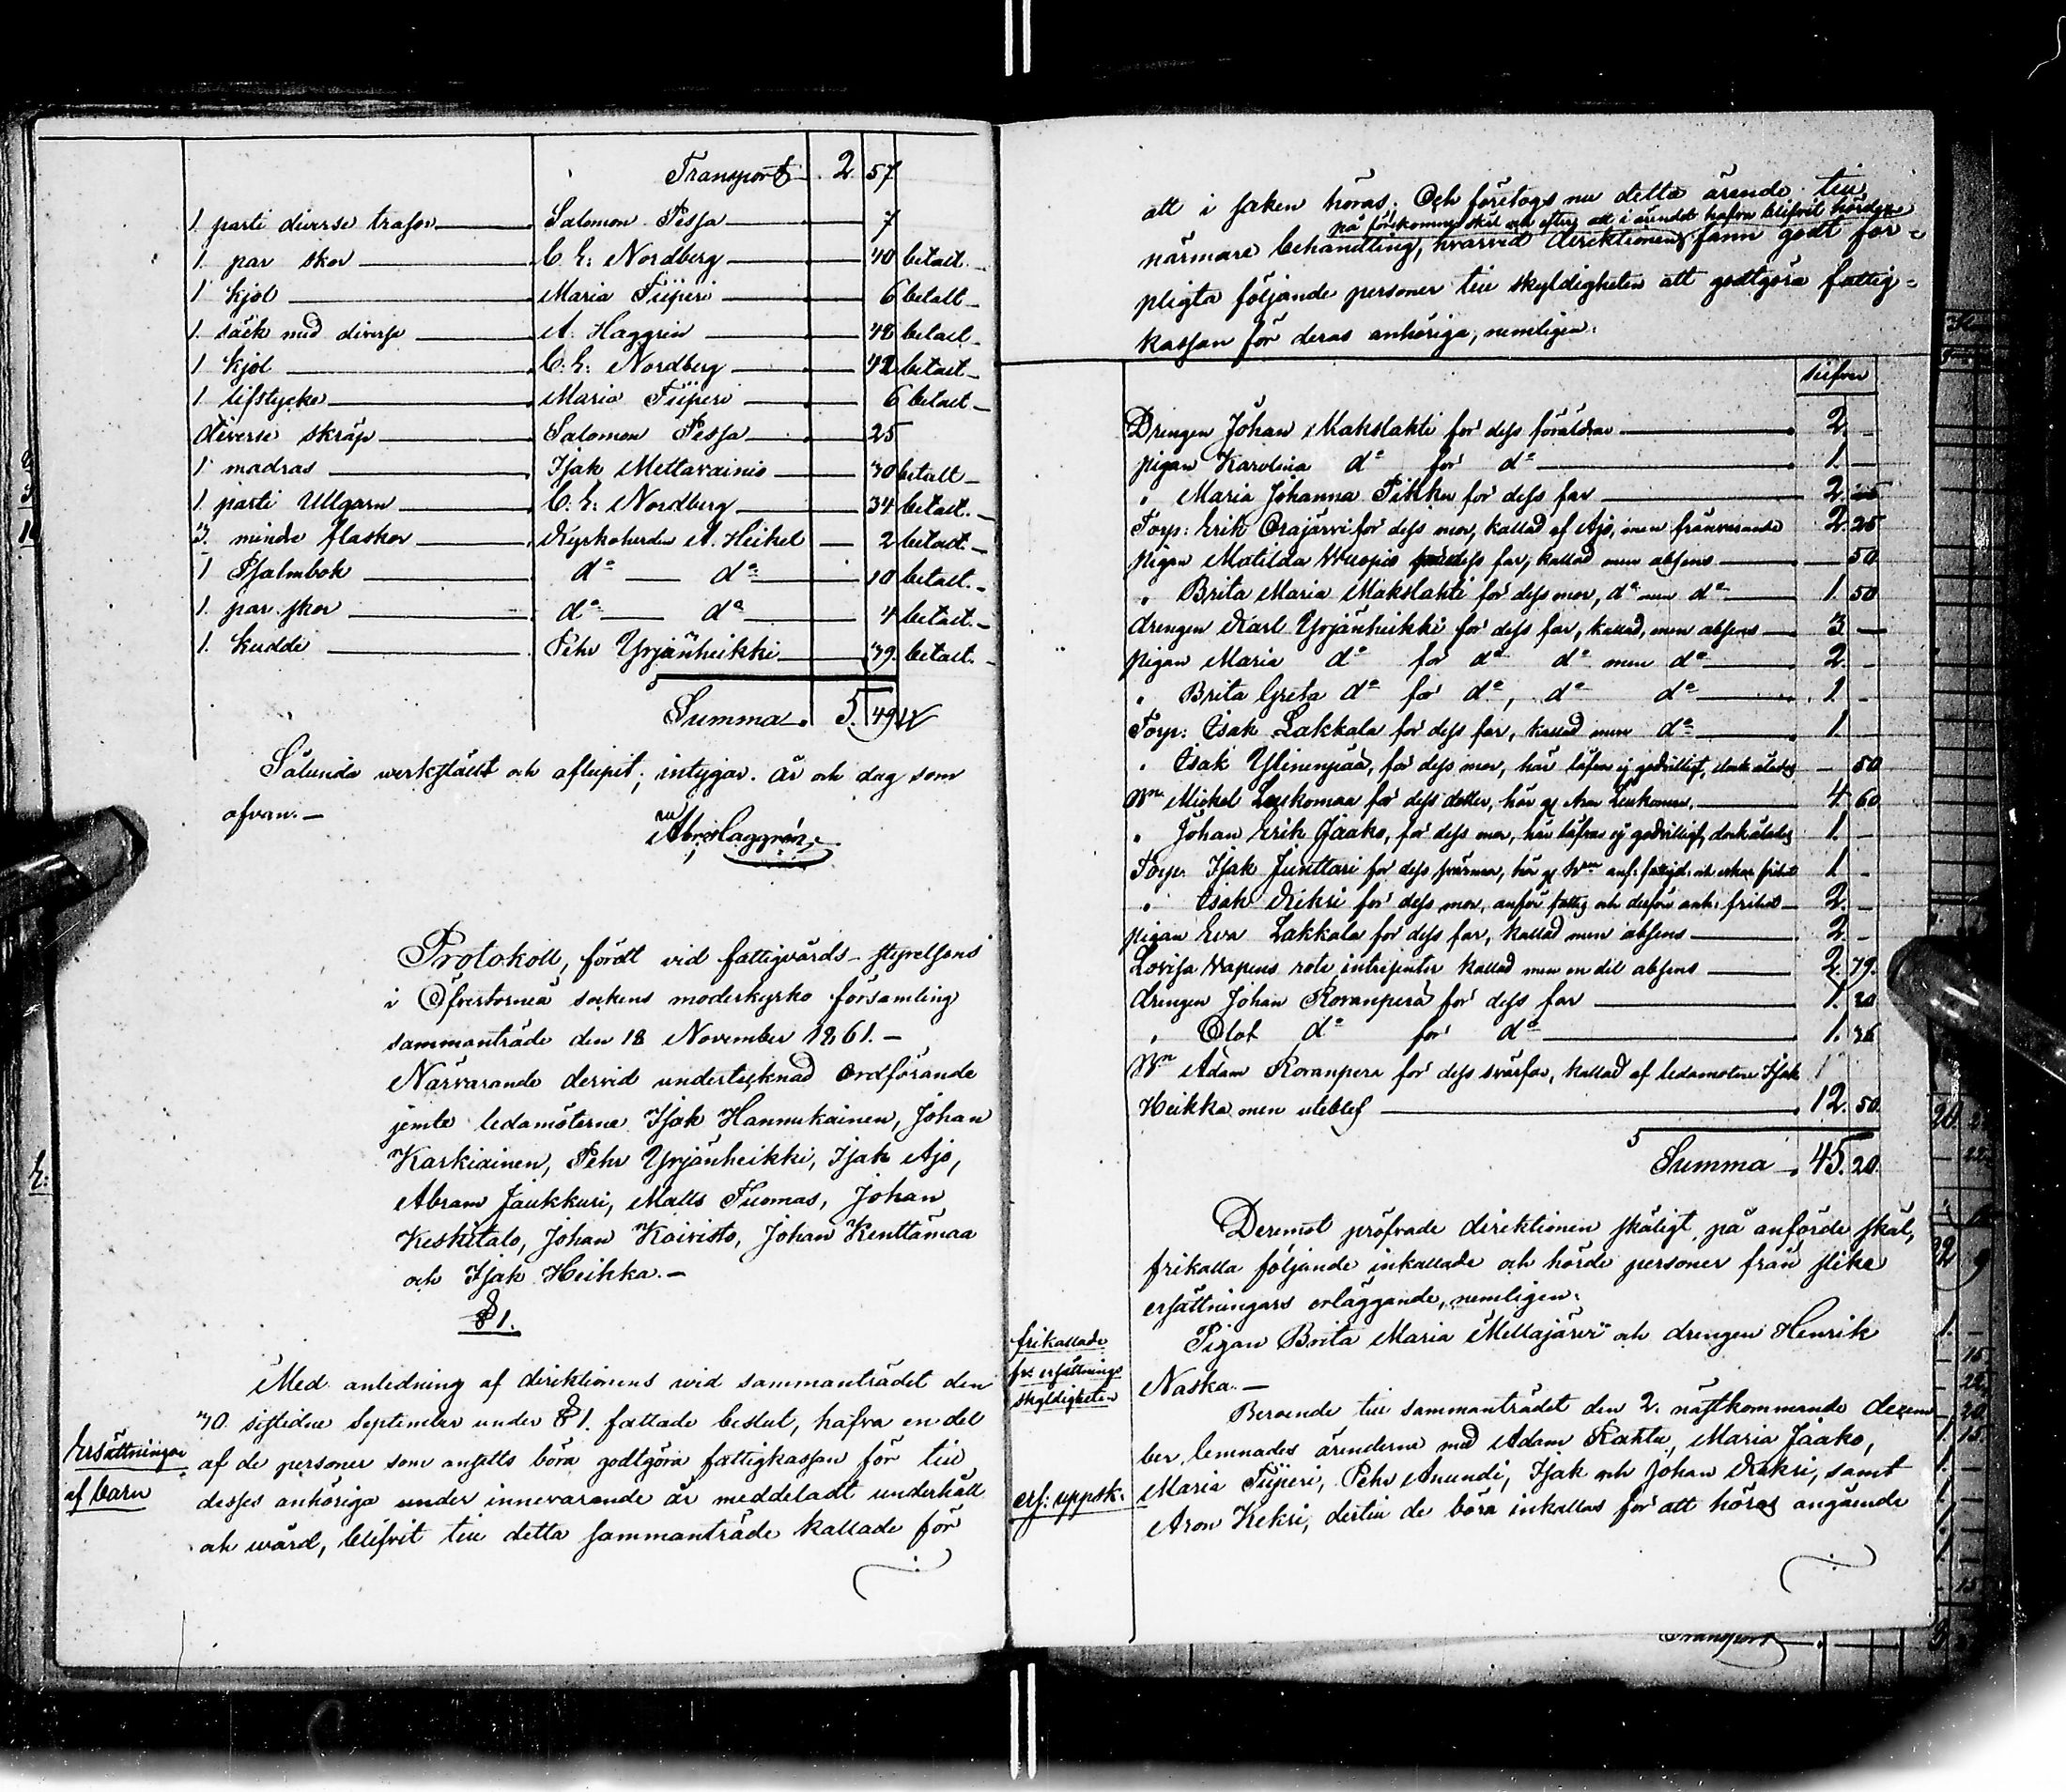 Transport 2 57
1 parti diverse trasor Salomon Pessa 7
1 par skor C. E. Nordberg 40 betalt
1 kjol Maria Tüperi 6 betalt
1 säck med diverse A. Haggrén 42 betalt
1 kjol C. E. Nordberg 42 betalt
1 lifstycke Maria Tüperi 6 betalt
diverse skräp Salomon Pessa 25
1 madras Isak Mettavainio 30 betalt
1 parti Ullgarn C. E. Nordberg 34 betalt
3 mindre flaskor Kyrkoherden A. Heikel 2 betalt
1 Psalmbok do do 10 betalt
1 par skor do do 4 betalt
1 kudde Pehr Yrjänheikki 39 betalt
Summa 5. 49
Sålunda werkstäldt och aflupit, intygar. År och dag som
ofvan.
Abr. Haggrén
Protokoll, fördt vid fattigvårds-styrelsens
i Öfvertorneå sockens moderkyrko församling
sammanträde den 18 November 1861.
Närvarande dervid undertecknad Ordförande
jemte ledamöterne Isak Hannukainen, Johan
Karkiainen, Pehr Yrjänheikki, Isak Ajo,
Abram Jaukkuri, Matts Tuomas, Johan
Keskitalo, Johan Koivisto, Johan Kenttämaa
och Isak Heikka.
§ 1.
Med anledning af direktionens vid sammanträdet den
30 sistlidne September under § 1. fattade beslut, hafva en del
Ersättningar af barn
af de personer som ansetts böra godtgöra fattigkassan för till
desses anhöriga under innevarande år meddeladt underhåll
och wård, blifvit till detta sammanträde kallade för
att i saken höras. Och företogs nu detta ärende till
på förekomne skäl och efter att i ärendet hafva blifvit hörde
närmare behandling, hvarvid direktionen fann godt för-
pligta följande personer till skyldigheten att godtgöra fattig-
kassan för deras anhöriga, nemligen:
silfver
Drengen Johan Makslahti för dess föräldrar 2. -
pigan Karolina do för do 1. -
" Maria Johanna Pikku för dess far 2.
Torp: Erik Orajärvi för dess mor, kallad af Ajo, men frånvarande 2. 25
pigan Matilda Wuopio för dess far, kallad men absens - 50
" Brita Maria Makslahti för dess mor, do men do 1. 50
drengen Karl Yrjänheikki för dess far, kallad, men absens 3 -
pigan Maria do för do do men do 2. -
" Brita Greta do för do, do do 1 -
Torp: Isak Lakkala för dess far, kallad men do 1 -
" Isak Ylinenpää, för dess mor, här löfva ej godvilligt, dock ålades - 50
Mickel Leukomaa för dess dotter, här gm Aron Leukomaa 4 60
" Johan Erik Jaako, för dess mor, här löfvas ej godvilligt, dock ålades 1. -
Torp. Isak Junttari för dess svärmor, här 1 -
" Isak Kekri för dess mor, anför fattig och derför anh: frihet 2. -
pigan Eva Lakkala för dess far, kallad men absens 2. -
Lovisa Wapens rote intressenter kallad men en del absens 2. 79.
drengen Johan Rovanperä för dess far 1. 20
" Olof do för do 1. 36
Adam Rovanpera för dess svärfar, kallad af ledamoten Isak
Heikka men uteblef 12. 50
Summa 45. 20
Deremot pröfvade direktionen skäligt, på anförde skäl,
frikalla följande inkallade och hörde personer från slike
ersättningars erläggande, nemligen:
frikallade frå. ersättnings skyldigheten
Pigan Brita Maria Mellajärvi och drengen Henrik
Naska.
Beroende till sammanträdet den 2. nästkommande decem-
ber lemnades ärenderne med Adam Rahtu, Maria Jaako,
erf. uppsk.
Maria Tüperi, Pehr Anundi, Isak och Johan Kekri, samt
Aron Kekri, dertill de böra inkallas för att höras angående
Transport